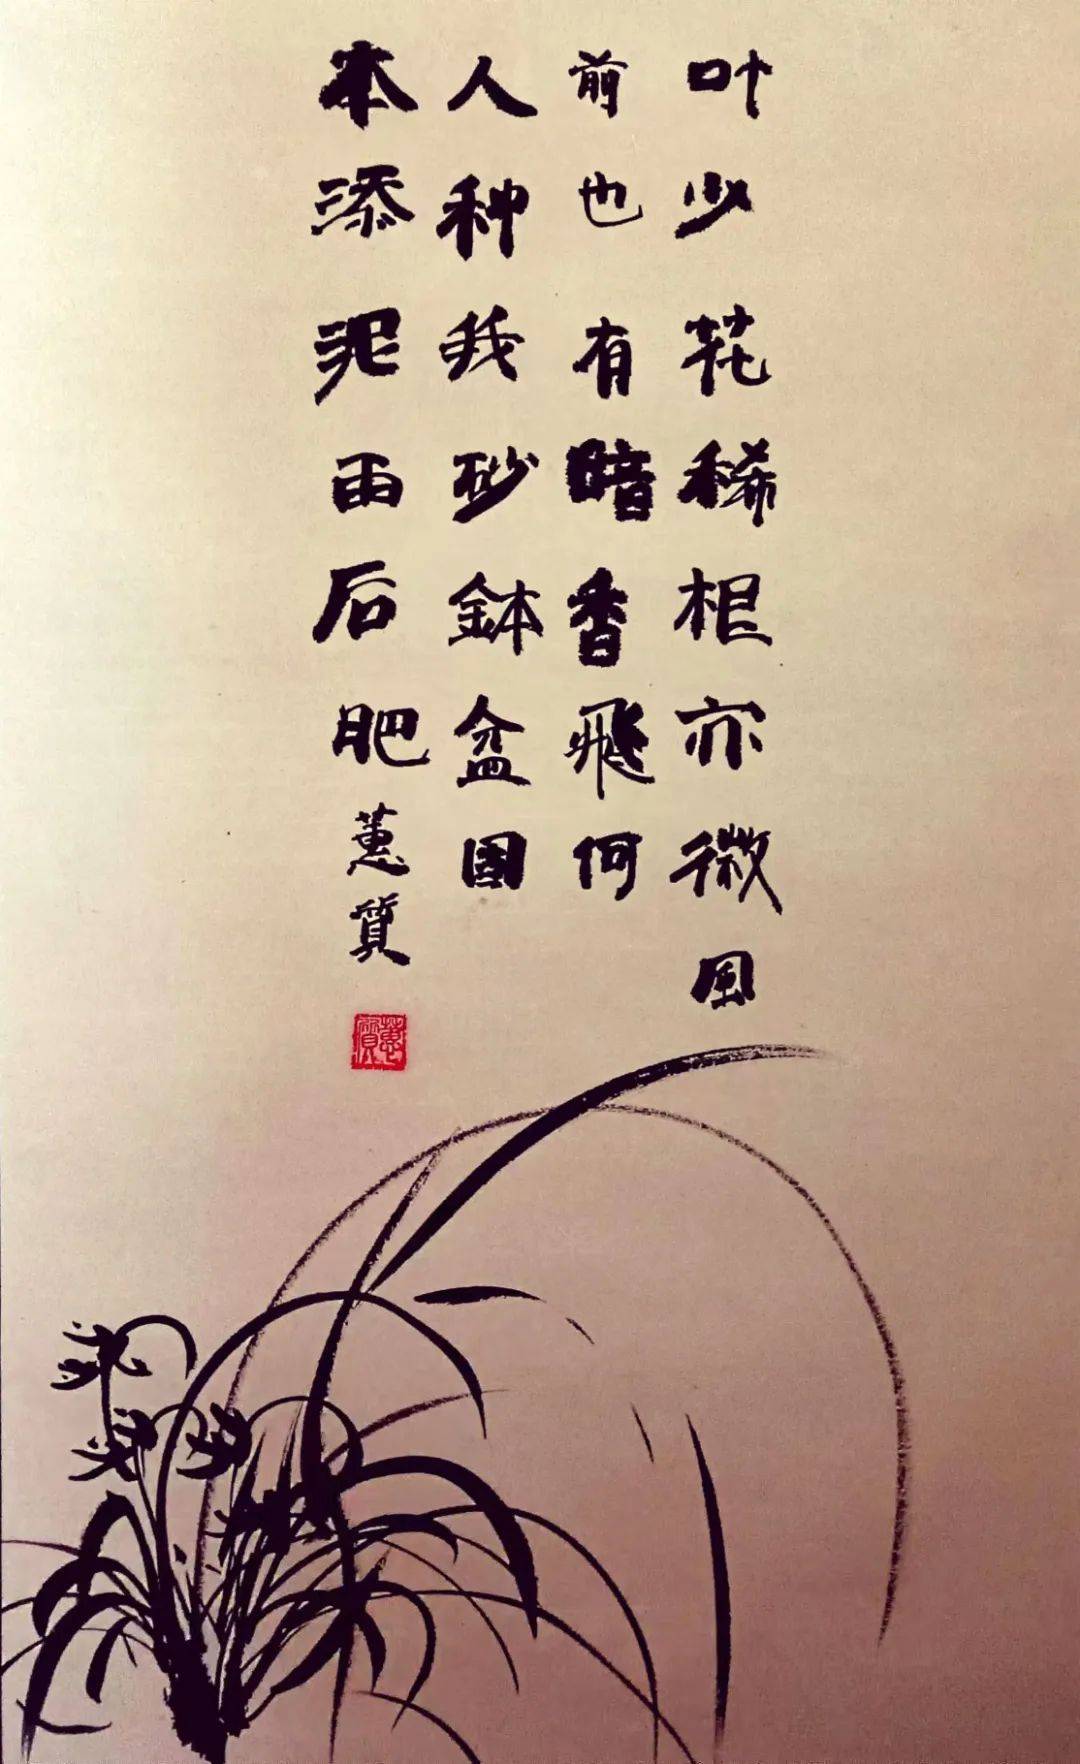 叶少花稀根亦微风
前也有暗香飛何
人种我砂鉢盆固
本添泥雨后肥
蕙質
蕙質